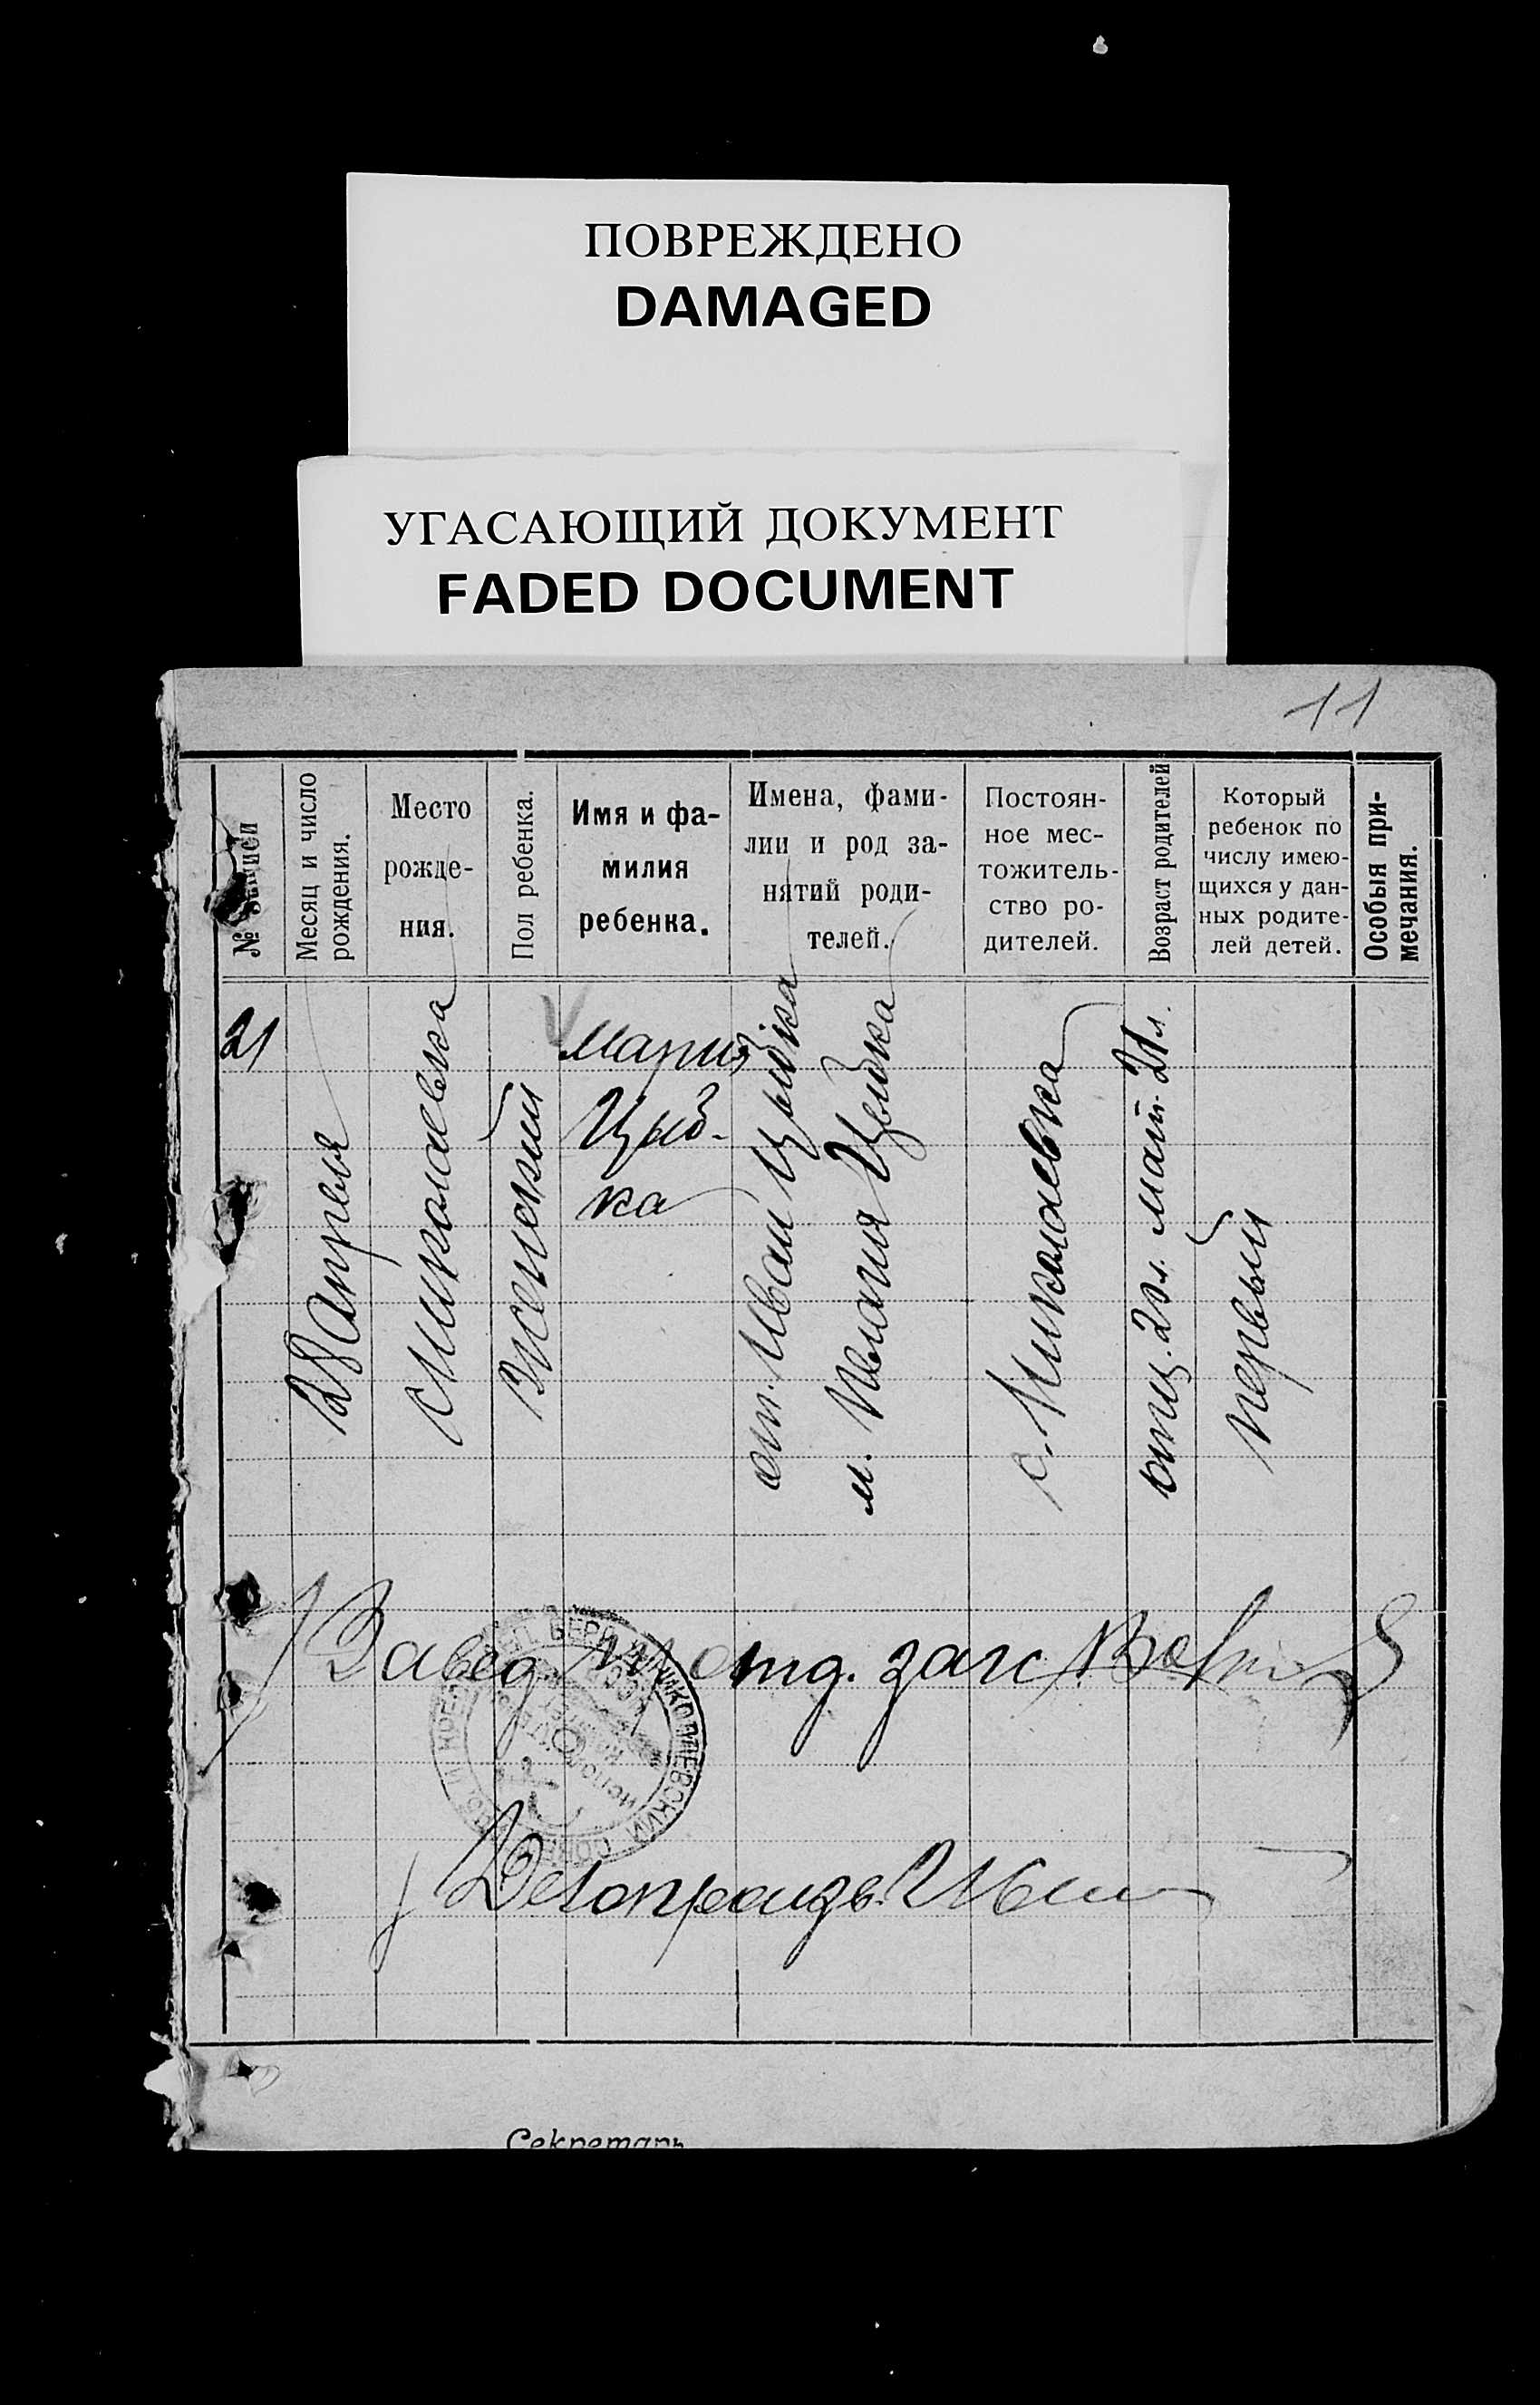 ПОВРЕЖДЕНО
DAMAGED
УГАСАЮЩИЙ ДОКУМЕНТ
FADED DOCUMENT
11
№ записи
Месяц и число
рождения.
Место
рожде-
ния.
Пол ребенка.
Имя и фа-
милия
ребенка.
Имена, фами-
лии и род за-
нятий роди-
телей.
Постоян-
ное мес-
тожитель-
ство ро-
дителей.
Возраст родителей
Который
ребенок по
числу имею-
щихся у дан-
ных родите-
лей детей.
Особыя при-
мечания.
21
28 Апреля
с Николаевка
Женский
Мария
Цыб-
ка
от. Иван Цыбка
м. Пелагия Цыбка
с. Николаевка
отц. 20 л. мат. 21 л.
первый
Завед отд. загс
НИКОЛАЕВСКИЙ
Делопроизв.
Секретарь